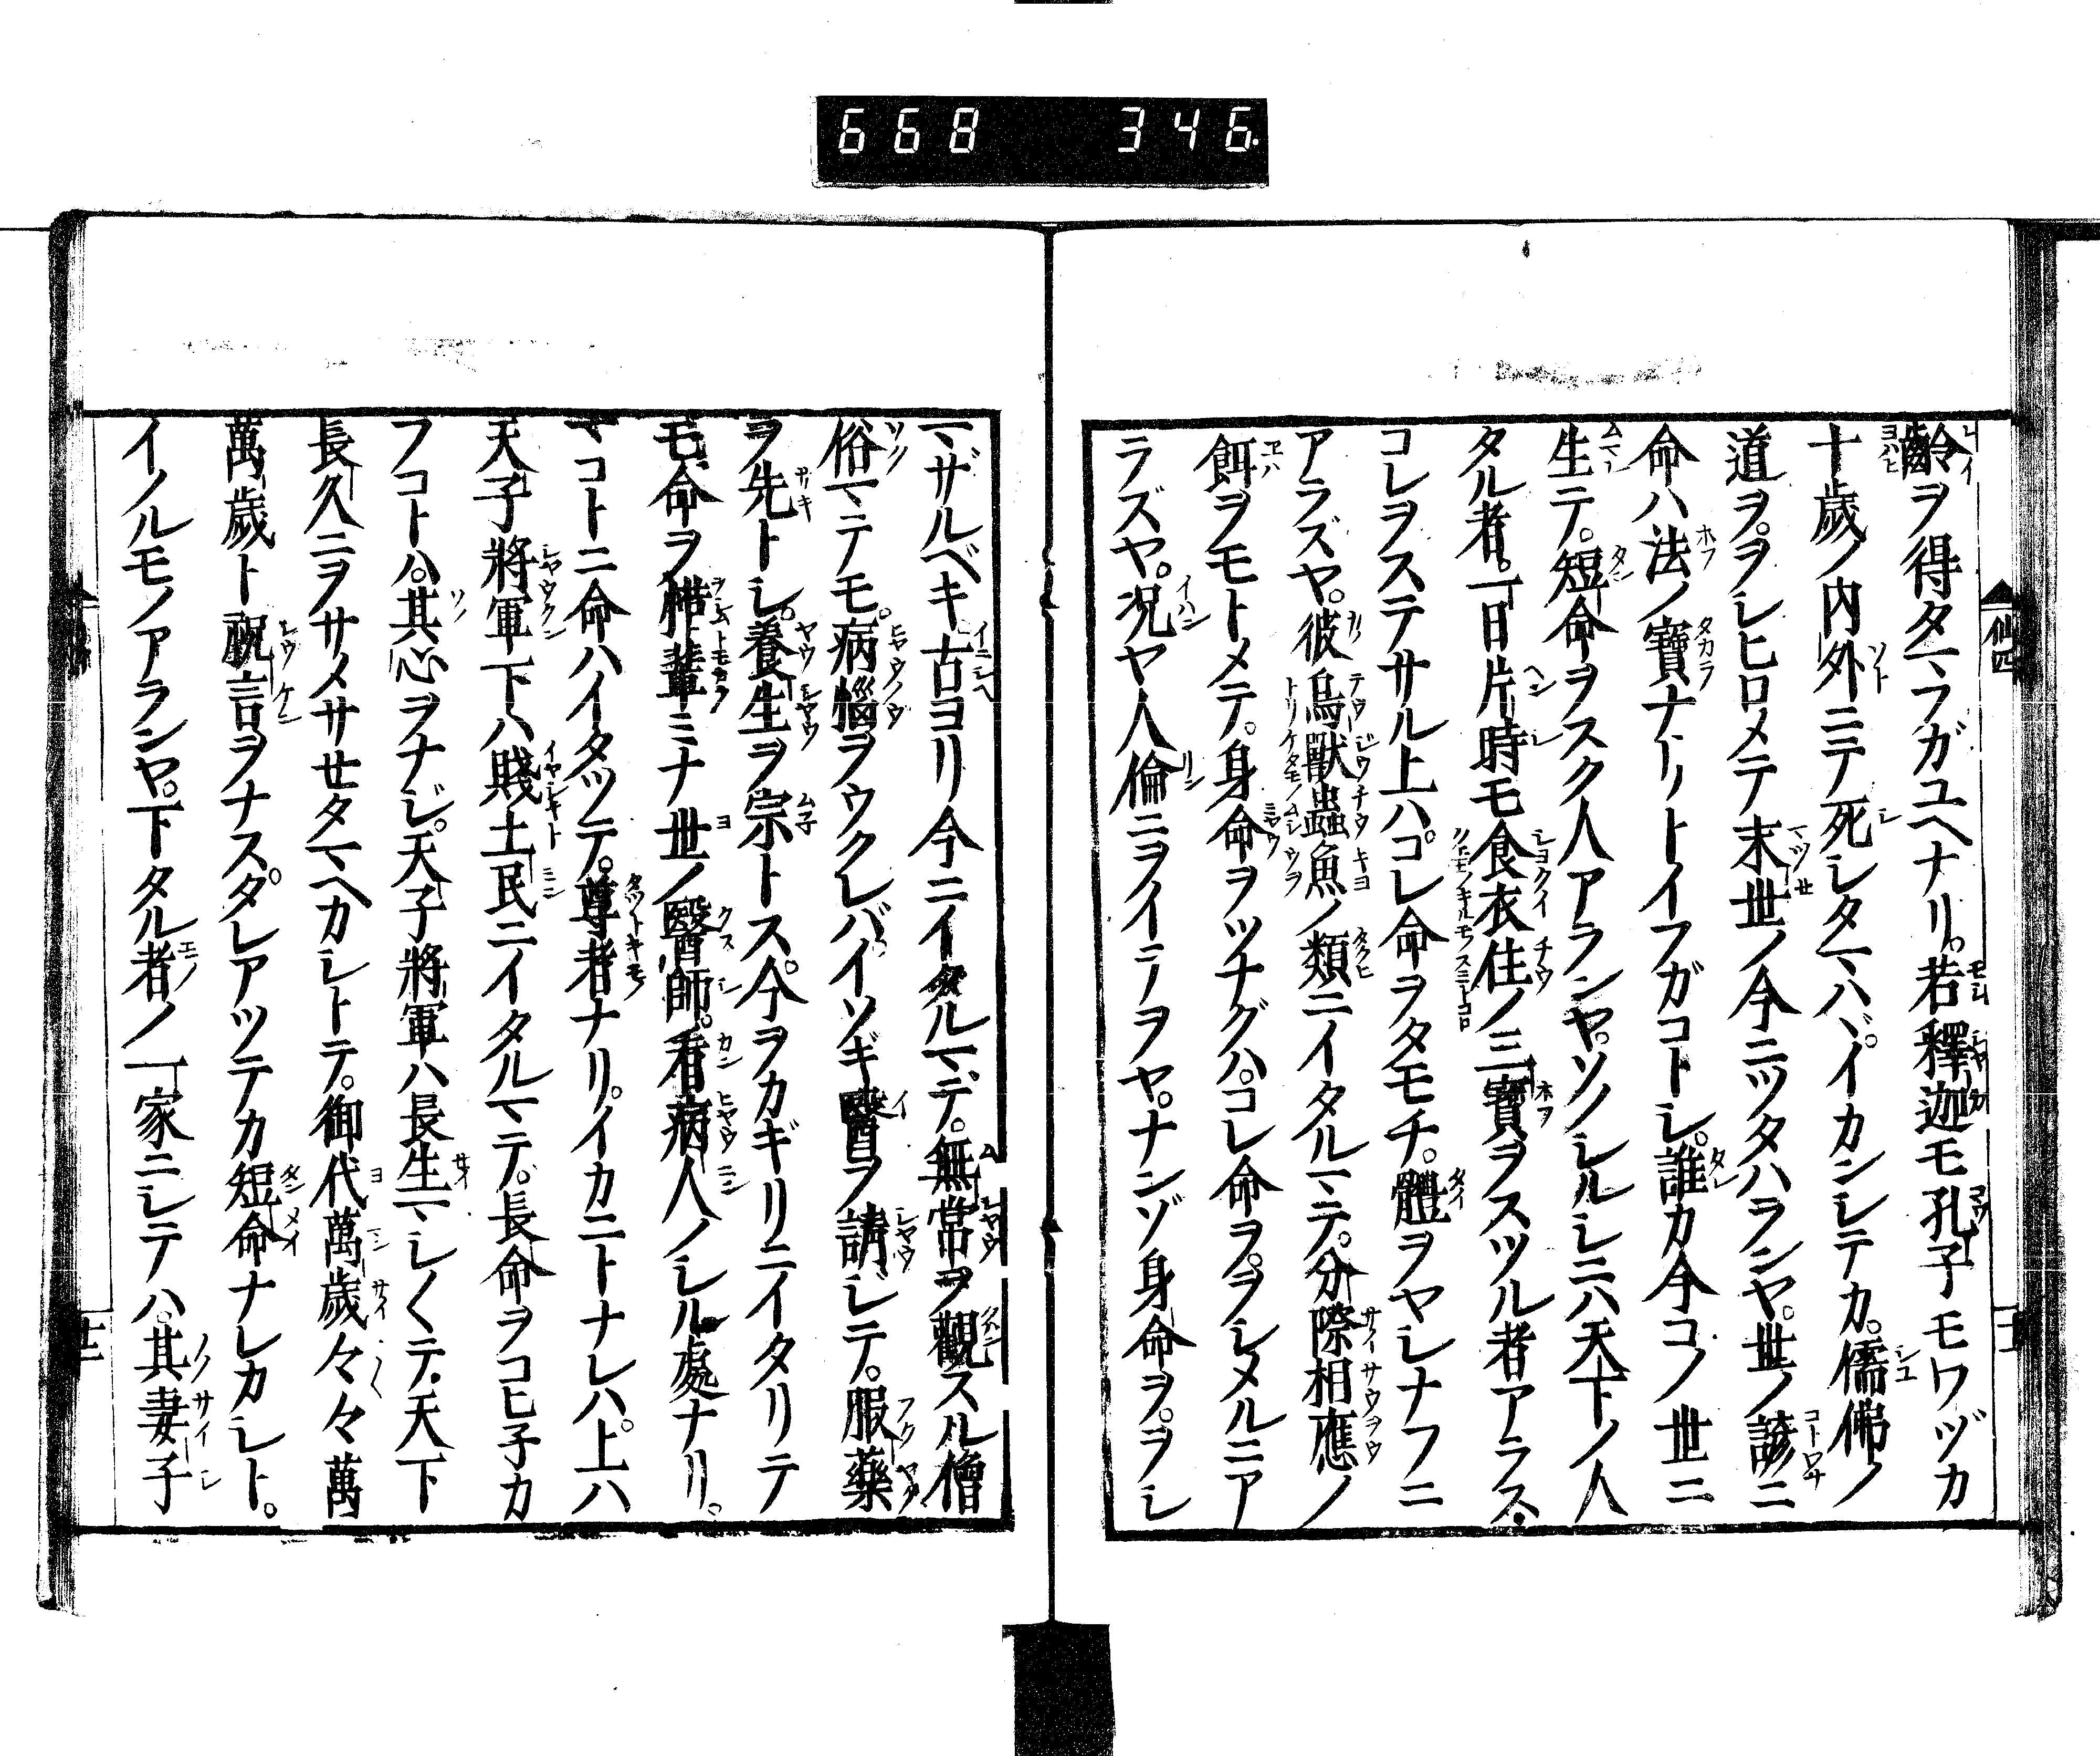 668 346
齡ヲ得タマフガユヘナリ。若釋迦モ孔子モワヅカ
十歲ノ内外ニテ死シタマハヾ。イカンシテカ。儒佛ノ
道ヲ。ヲシヒロメテ末世ノ今ニツタハランヤ。世ノ諺ニ
命ハ法ノ寶ナリトイフガコトシ。誰カ今コノ世ニ
生テ。短命ヲスク人アランヤ。ソノシルシニハ天下ノ人
タル者。一日片時モ食衣住ノ三寶ヲスツル者アラス。
コレヲステサル上ハ。コレ命ヲタモチ。體ヲヤシナフニ
アラズヤ。彼鳥獸蟲魚ノ類ニイタルマテ。分際相應ノ
餌ヲモトメテ。身命ヲツナグハ。コレ命ヲ。ヲシメルニア
ラズヤ。况ヤ人倫ニヲイテヲヤ。ナンゾ身命ヲ。ヲシ
マザルベキ古ヨリ今ニイタルマデ。無常ヲ觀スル僧
俗マテモ。病惱ヲウクレバ。イソギ醫ヲ請ジテ。服藥
ヲ先トシ。養生ヲ宗トス。今ヲカギリニイタリテ
モ。命ヲ惜輩ミナ世ノ醫師。看病人ノシル處ナリ。
マコトニ命ハイタツテ。尊者ナリ。イカニトナレハ。上ハ
天子將軍下ハ賤土民ニイタルマテ。長命ヲコヒ子カ
フコトハ。其心ヲナジ。天子將軍ハ長生マシ〱テ。天下
長久ニヲサメサセタマヘカシトテ。御代萬歲々々萬
萬歲ト祝言ヲナス。タレアツテカ短命ナレカシト。
イノルモノアランヤ。下タル者ノ一家ニシテハ。其妻子